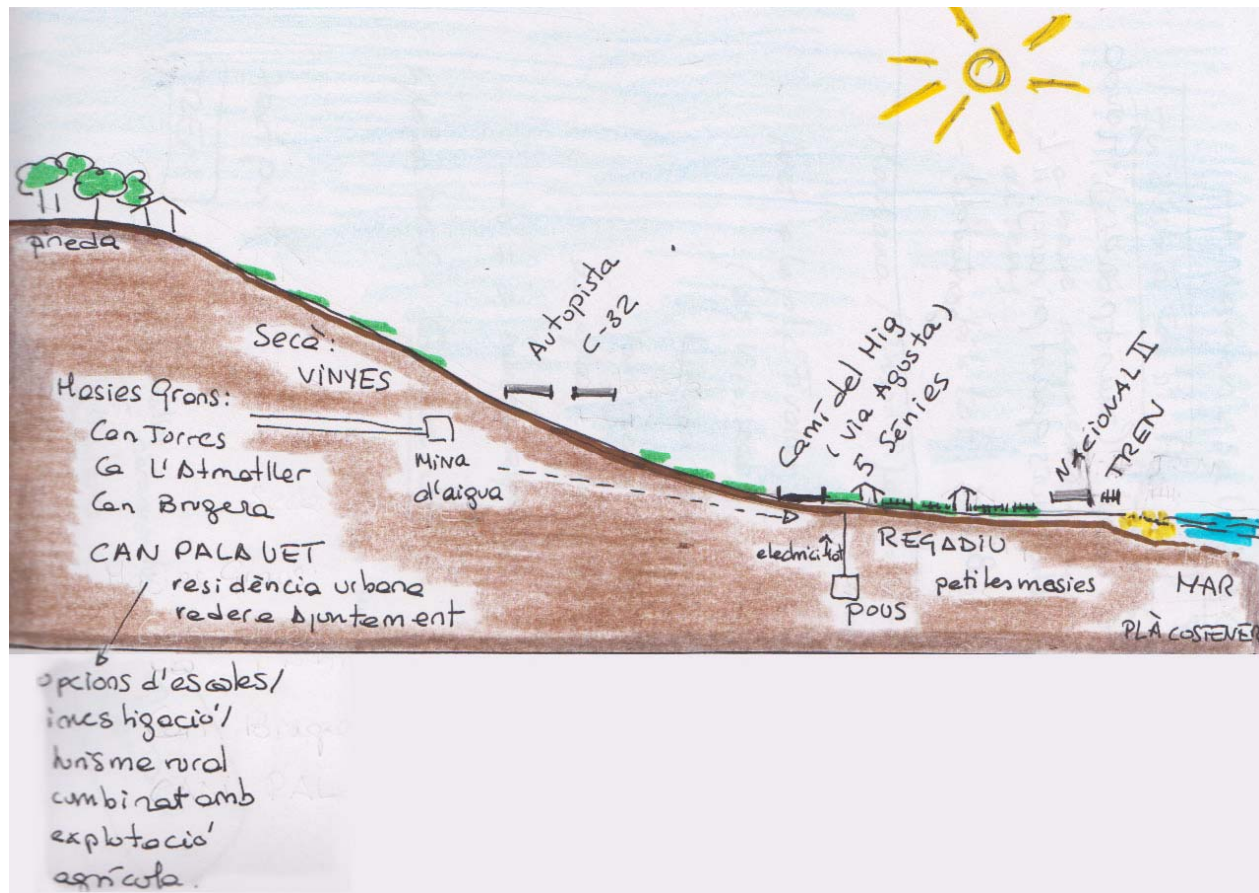 pineda
Secà:
VINYES
Autopista
C-32
Masies Grans:
Can Torres
Ca L'Atmatller
Can Brugera
CAN PALAUET
residència urbana
redera Ajuntement
Mina
d'aigua
Camí del Mig
(Via Agusta)
5 Sènies
NACIONAL II
TREN
electricitat
REGADIU
petites masies
POUS
MAR
PLÀ COSTENER
opcions d'escoles/
investigació/
turisme rural
combinat amb
explotació
agrícola.